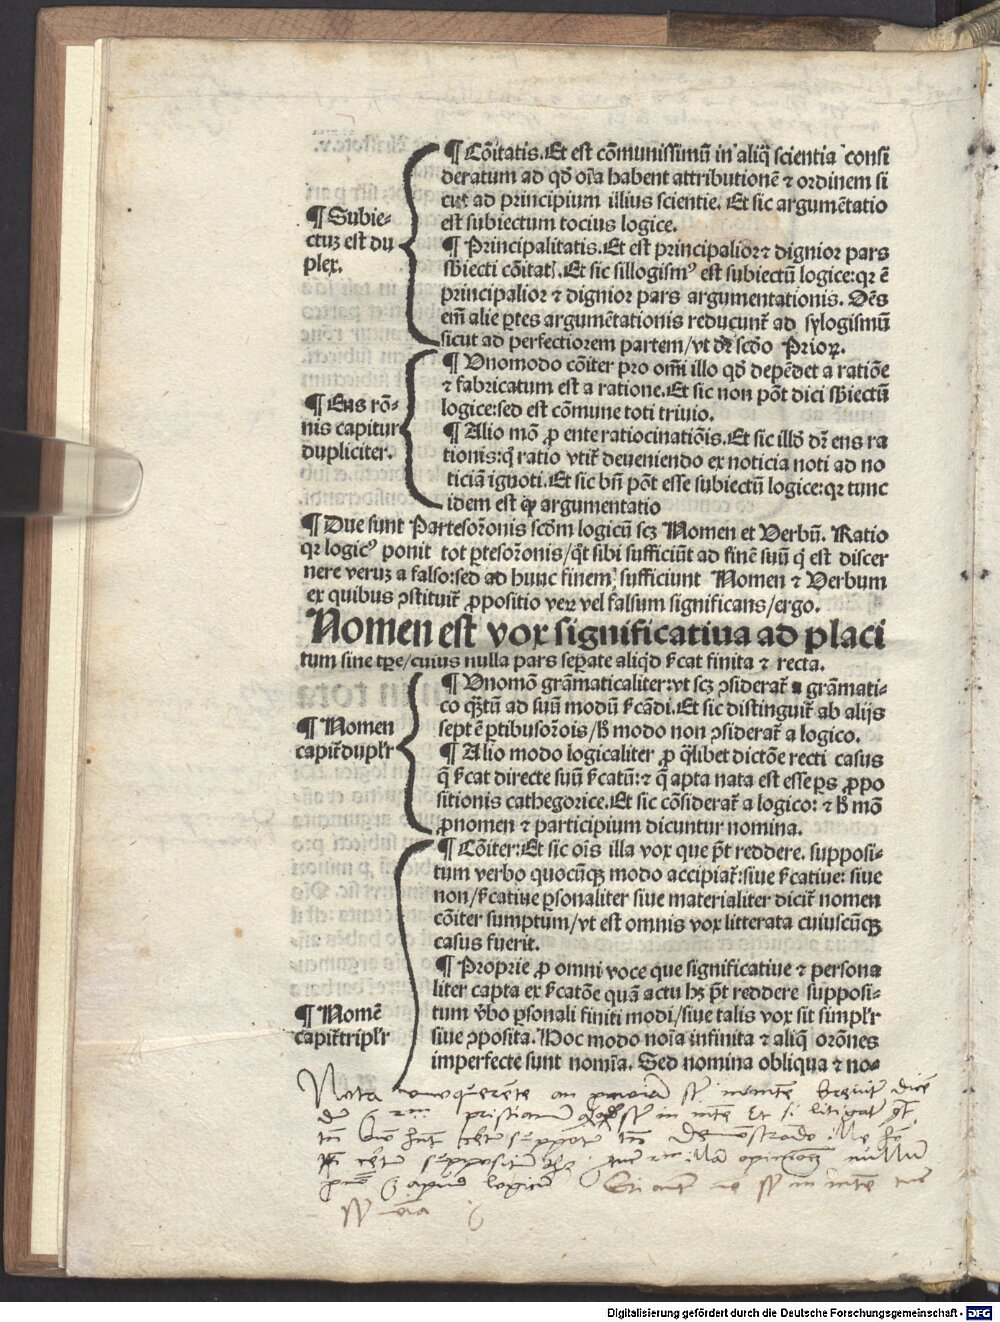 ¶ Subie-
ctuȝ est du
plex.
¶ Cōitatis. Et est cōmunissimū in aliq̄ scientia consi
deratum ad qd̄ oīa habent attributionē ⁊ ordinem si
cut ad principium illius scientie. Et sic argumētatio
est subiectum tocius logice.
¶ Principalitatis. Et est principalior ⁊ dignior pars
sb̄iecti cōitatꝭ. Et sic sillogismꝰ est subiectū logice: qr ē
principalior ⁊ dignior pars argumentationis. Oēs
em̄ alie ꝑtes argumētationis reducunt̄ ad sylogismū
sicut ad perfectiorem partem/vt dr̄ scd̄o Prioꝝ.
¶ Ens rō-
nis capitur
dupliciter.
¶ Vnomodo cōiter pro om̄i illo qd̄ depēdet a ratiōe
⁊ fabricatum est a ratione. Et sic non pōt dici sb̄iectū
logice: sed est cōmune toti triuio.
¶ Alio mō ꝓ ente ratiocinatiōis. Et sic illd̄ dr̄ ens ra
tionis: q̄ ratio vtit̄ deueniendo ex noticia noti ad no
ticiā ignoti. Et sic bn̄ pōt esse subiectū logice: qr tunc
idem est qꝫ argumentatio
¶ Due sunt Partesorōnis scd̄m logicū scꝫ Nomen et Verbū. Ratio
qr logicꝰ ponit tot ꝑtesorōnis/qt̄ sibi sufficiūt ad finē suū q̄ est discer
nere veruȝ a falso: sed ad hunc finem sufficiunt Nomen ⁊ Verbum
ex quibus ꝯstituit̄ ꝓpositio veꝝ vel falsum significans/ergo.
Nomen est vox significatiua ad placi
tum sine tꝑe/cuius nulla pars seꝑate aliqd̄ ſ̄cat finita ⁊ recta.
¶ Nomen
capit̄ duplr̄
¶ Vnomō grāmaticaliter: vt scꝫ ꝯsiderat̄ a grāmati-
co qꝫtū ad suū modū ſ̄cādi. Et sic distinguit̄ ab alijs
septē ꝑtibusorōis/h̄ modo non ꝯsiderat̄ a logico.
¶ Alio modo logicaliter ꝓ q̄libet dictōe recti casus
q̄ ſ̄cat directe suū ſ̄catū: ⁊ q̄ apta nata est esse ꝑs ꝓpo
sitionis cathegorice. Et sic cōsiderat̄ a logico: ⁊ h̄ mō
ꝓnomen ⁊ participium dicuntur nomina.
¶ Nomē
capit̄ triplr̄
¶ Cōiter: Et sic oīs illa vox que pōt reddere supposi-
tum verbo quocūqꝫ modo accipiat̄: siue ſ̄catiue: siue
non/ſ̄catiue ꝑsonaliter siue materialiter dicit̄ nomen
cōiter sumptum/vt est omnis vox litterata cuiuscūqꝫ
casus fuerit.
¶ Proprie ꝓ omni voce que significatiue ⁊ persona
liter capta ex ſ̄catōe quā actu hꝫ pōt reddere supposi-
tum v̄bo ꝑsonali finiti modi/siue talis vox sit simplr̄
siue ꝯposita. Hoc modo noīa infinita ⁊ aliq̄ orōnes
imperfecte sunt nomīa. Sed nomina obliqua ⁊ no-
Nota
Digitalisierung gefördert durch die Deutsche Forschungsgemeinschaft - DFG